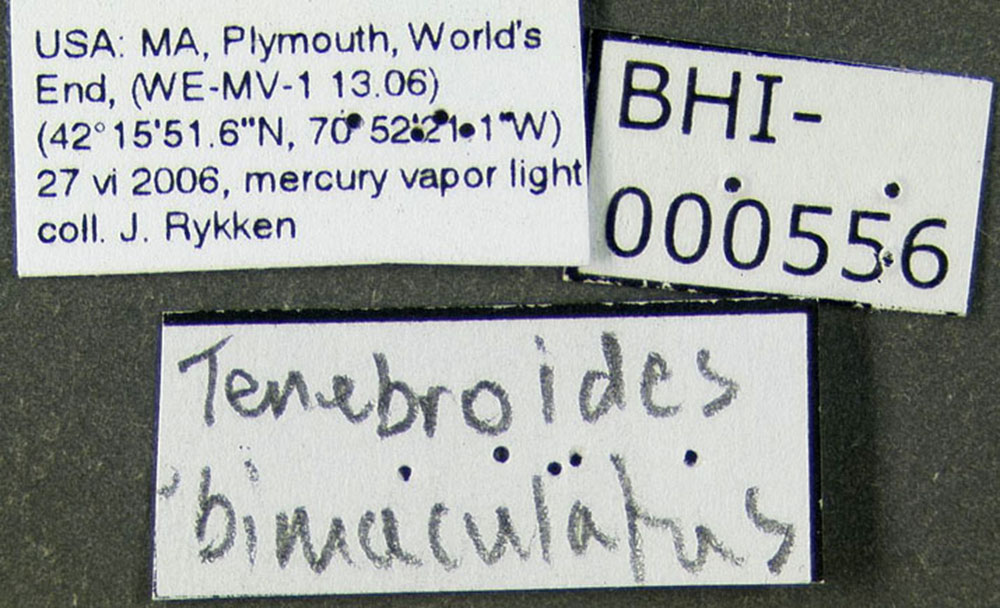 USA: MA, Plymouth, World's
End, (WE-MV-1 13.06)
(42°15'51.6"N, 70°52'21.1"W)
27 vi 2006, mercury vapor light
coll. J. Rykken
BHI-
000556
Tenebroides
bimaculatus